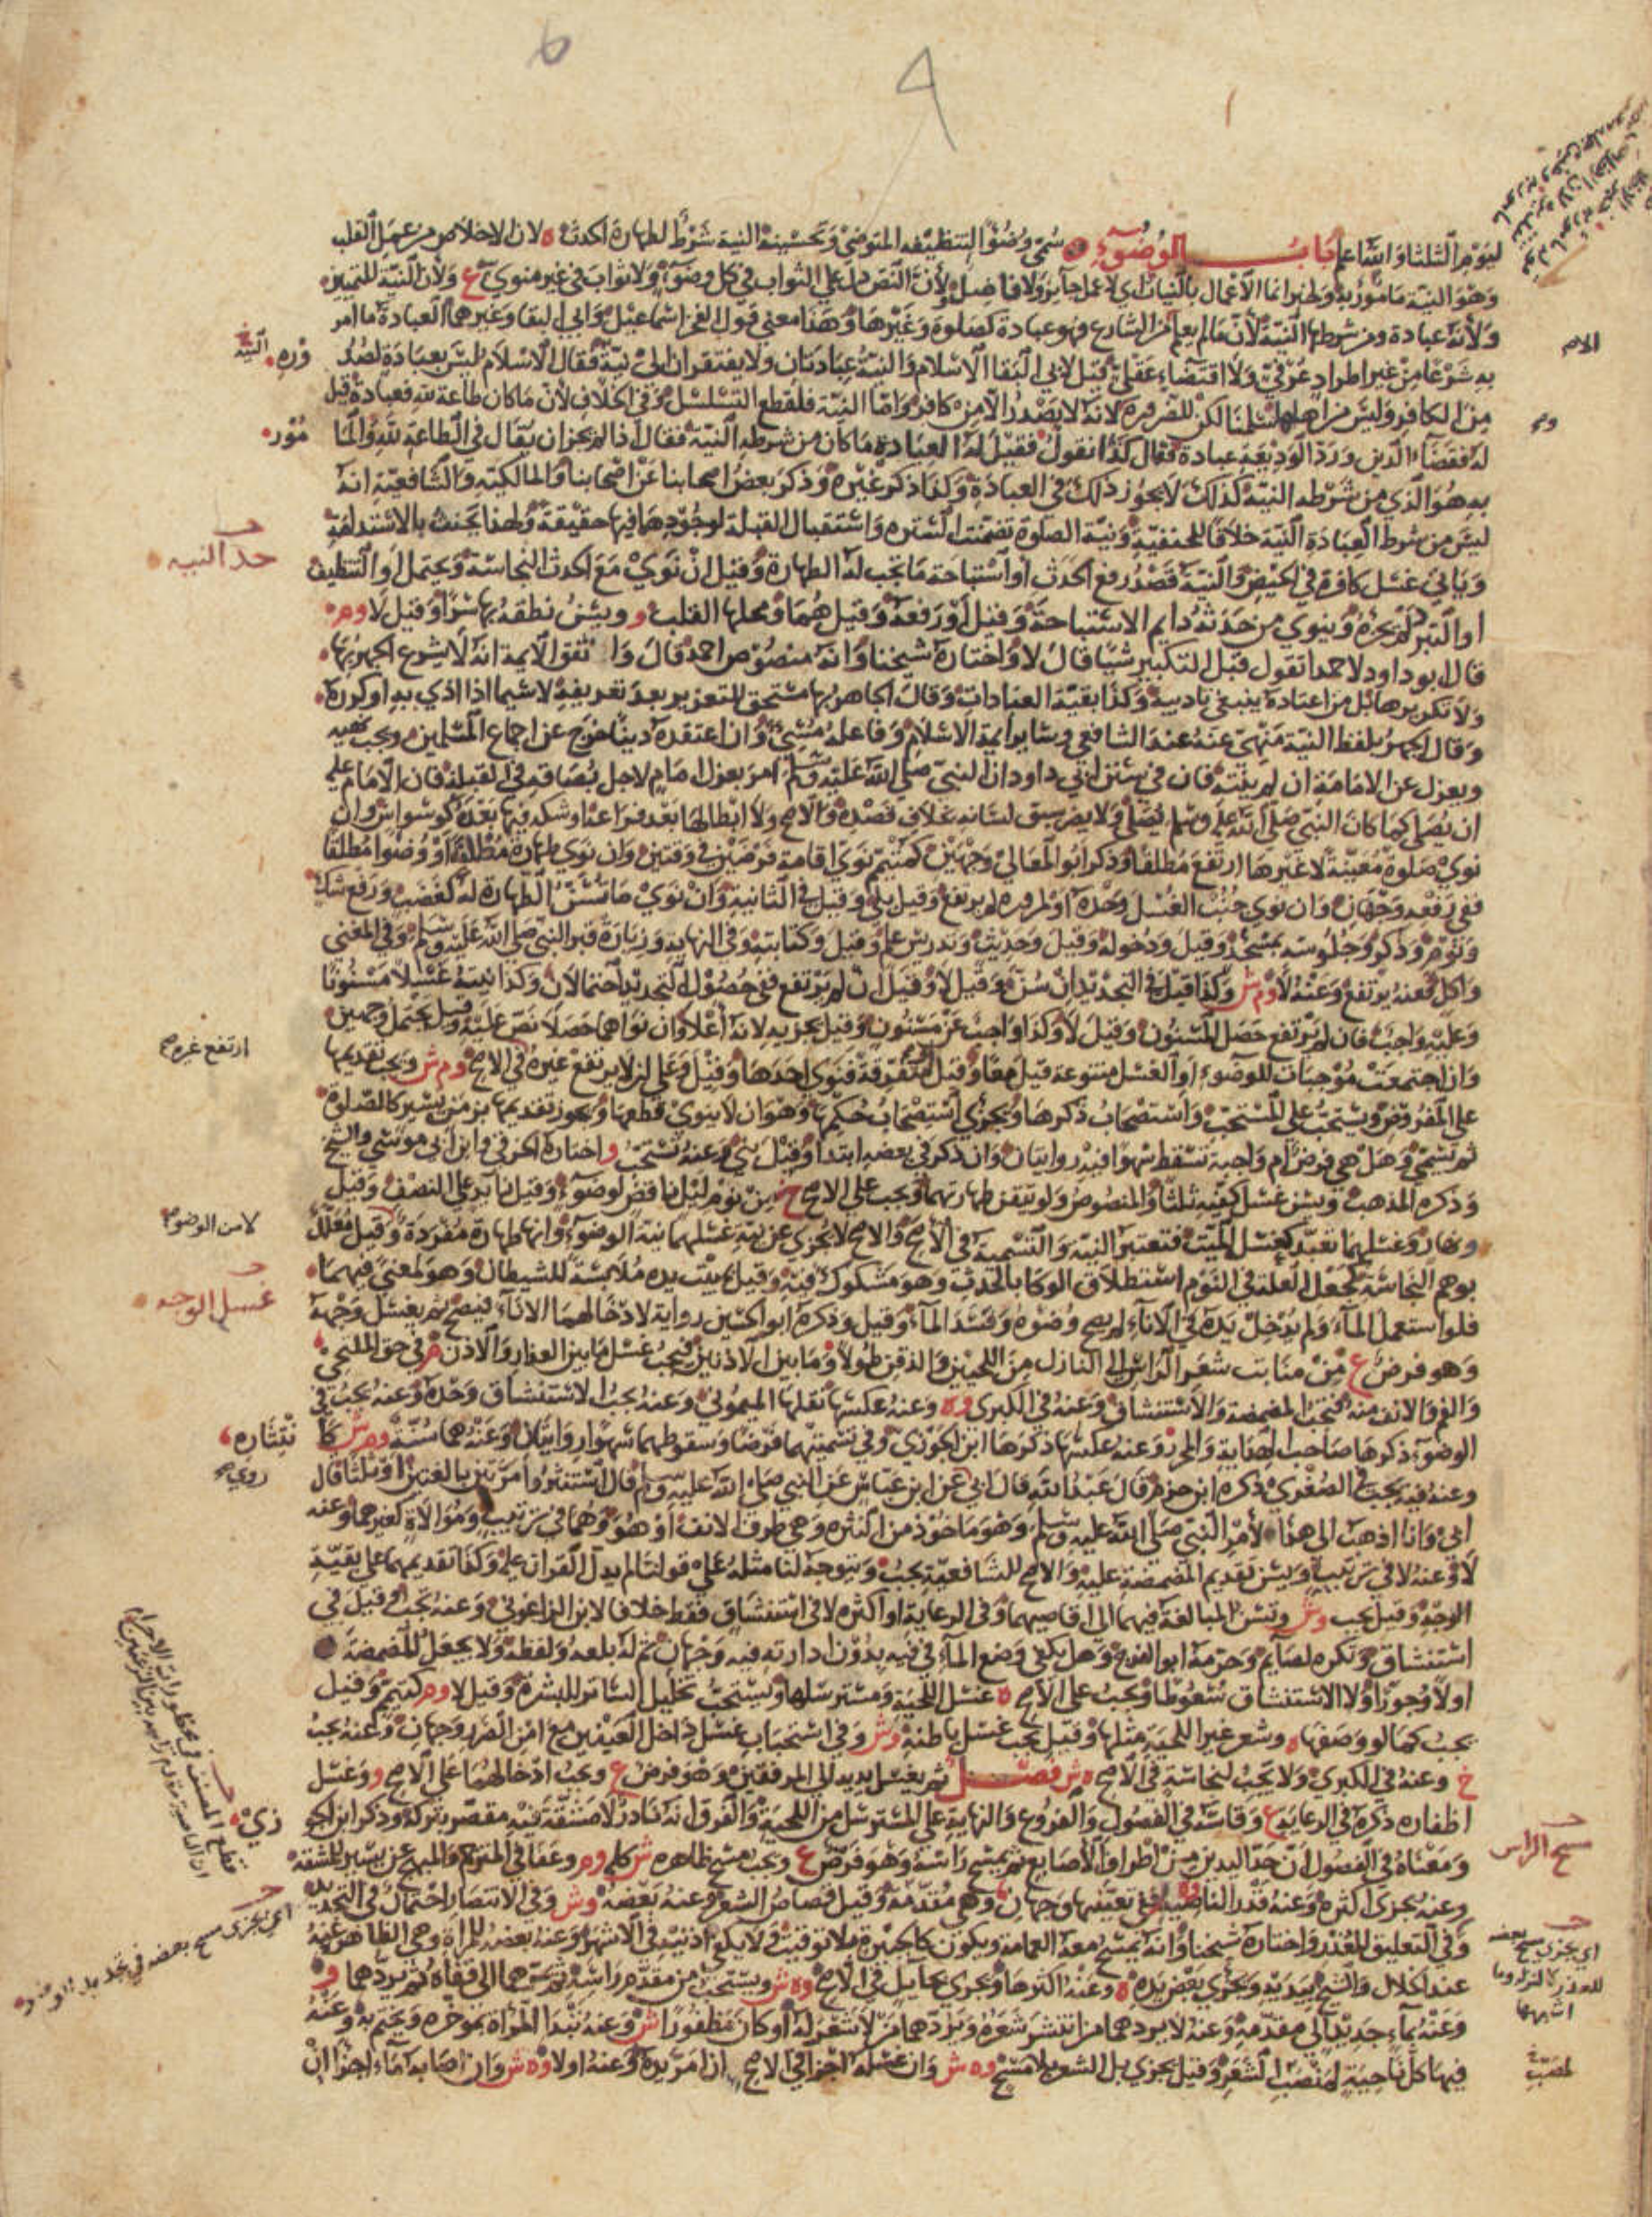 ليوم الثلثا والله اعلم باب الوضوء سمي وضوءا لتنظيفه المتوضئ وتحسينه النية شرط لطهارة الحدث ه لان الاخلاص من عمل القلب
وهو النية مامور به ولخبر انما الاعمال بالنيات اى لا عمل جائز ولا فاضل ولأن النص دل على الثواب في كل وضوء ولا ثواب في غير منوي ع ولأن النية للتمييز
ولأنه عبادة ومن شرطها النية لأن ما لم يعلم الا من الشارع فهو عبادة كصلوة وغيرها وهذا معنى قول الفخر اسماعيل وابي البقا وغيرهما العبادة ما امر
به شرعا من غير اطراد عرفي ولا اقتضاء عقلي قيل لابى البقا الاسلام والنية عبادتان ولا يفتقران الى نية فقال الاسلام ليس بعبادة لصدوره
من الكافر وليس من اهلها سلمنا لكن للضرورة لانه لا يصدر الا من كافر واما النية فلقطع التسلسل وفي الخلاف لأن ما كان طاعة لله فعبادة قيل
له فقضاء الدين ورد الوديعة عبادة فقال كذا نقول فقيل له العبادة ما كان من شرطه النية فقال اذا لم يجز ان يقال في الطاعة لله والمامور
به هو الذي من شرطه النية كذلك لا يجوز ذلك في العبادة وكذا ذكر غيره وذكر بعض اصحابنا عن اصحابنا والمالكية والشافعية انه
ليس من شرط العبادة النية خلافا للحنفية ونية الصلوة تضمنت الستره واستقبال القبلة لوجودهما فيها حقيقة ولهذا يحنث بالاستدامة
وياتي غسل كافرة في الحيض والنية قصد رفع الحدث أو استباحة ما تجب له الطهارة وقيل ان نوى مع الحدث النجاسة ويحتمل أو التنظيف
او التبرد لم يجزه وينوي من حدثه دايم الاستباحة وقيل أو رفعه وقيل هما ومحلها القلب و ويسن نطقه بها سرا وقيل لا وم
قال ابو داود لاحمد اتقول قبل التكبير شيئا قال لا واختاره شيخنا وانه منصوص احمد قال واتفق الايمة انه لا يشرع الجهر بها
ولا تكريرها بل من اعتاده ينبغي تاديبه وكذا بقية العبادات وقال الجاهر بها مستحق للتعزير بعد تعريفه لا سيما اذا اذي به او كرره
وقال الجهر بلفظ النية منهي عنه عند الشافعي وساير ايمة الاسلام وفاعله مسئ وان اعتقده دينا خرج عن اجماع المسلمين ويجب نهيه
ويعزل عن الامامة ان لم ينته فان في سنن ابي داود ان النبي صلى الله عليه وسلم امر بعزل امام لاجل بصاقه في القبلة فان الامام عليه
ان يصلي كما كان النبي صلى الله عليه وسلم يصلي ولا يضر سبق لسانه بخلاف قصده والاصح ولا ابطالها بعد فراغه او شكه فيها بعده كوسواس وان
نوى صلوة معينة لا غيرها ارتفع مطلقا وذكر ابو المعالي وجهين كمتيمم نوى اقامة فرضين في وقتين وان نوى طهارة مطلقا أو وضوءا مطلقا
ففي رفعه وجهان وان نوى جنب الغسل وحده او لمروره لم يرتفع وقيل بلى وقيل في الثانية وان نوى ما تسن الطهارة له كغضب ورفع شك
ونوم وذكر وجلوسه بمسجد وقيل ودخوله وقيل وحديث وتدريس علم وقيل وكتابته وفي النهاية وزيارة قبر النبي صلى الله عليه وسلم وفي المغني
واكل فعنه يرتفع وعنه لا وم ش وكذا قيل في التجديد ان سن وقيل لا وقيل ان لم يرتفع ففي حصول التجديد احتمالان وكذا نيته غسلا مسنونا
وعليه واجب فان لم يرتفع حصل المسنون وقيل لا وكذا واجب عن مسنون وقيل يجزيه لانه أعلا وان نواهما حصلا نص عليه وقيل يحتمل وجهين
وان اجتمعت موجبات للوضوء او الغسل متنوعة قيل معا وقيل متفرقة فنوى احدها وقيل وعلى ان لا يرتفع غيره في الاصح وم ش ويجب تقديمها
على المفروض ويستحب على المستحب واستصحاب ذكرها ويجزي استصحاب حكمها وهو ان لا ينوي قطعها ويجوز تقديمها بزمن يسير كالصلوة
ثم يسمي وهل هي فرض ام واجبة تسقط سهوا فيه روايتان وان ذكر في بعضه ابتدا وقيل بنى وعنه تستحب و اختاره الخرقي وابن ابي موسى والشيخ
وذكره المذهب ويسن غسل كفيه ثلثا والمنصوص ولو تيقن طهارتهما ويجب على الاصح خ من نوم ليل ناقض لوضوء وقيل زايد على النصف وقيل
ونهار وغسلهما تعبد كغسل الميت فتعتبر النية والتسمية في الاصح والاصح لا يجزى عن نية غسلهما نية الوضوء وانها طهارة مفردة وقيل معلل
بوهم النجاسة كجعل العلة في النوم استطلاق الوكا بالحدث وهو مشكوك فيه وقيل بمبيت يده ملابسة للشيطان وهو لمعنى فيهما
فلو استعمل الماء ولم يدخل يده في الاناء لم يصح وضوه وفسد الماء وقيل وذكره ابو الحسين رواية لادخالهما الاناء فيصح ثم يغسل وجهه
وهو فرض ع من منابت شعر الراس الى النازل من اللحيين والذقن طولا وما بين الاذنين فيجب غسل ما بين العذار والاذن م في حق الملتحي
والفم والانف منه فتجب المضمضة والاستنشاق وعنه في الكبرى وه وعنه عكسها نقلها الميموني وعنه يجب الاستنشاق وحده وعنه يجب في
الوضوء ذكرها صاحب الهداية والمحرر وعنه عكسها ذكرها ابن الجوزي وفي تسميتهما فرضا وسقوطهما سهوا روايتان وعنه هما سنة وم ش كانتثاره
وعنه فيه يجب في الصغرى ذكره ابن حزم قال عبد الله قال ابى روي عن ابن عباس عن النبي صلى الله عليه وسلم قال استنثروا مرتين بالغتين او ثلثا قال
ابى وانا اذهب الى هذا لأمر النبي صلى الله عليه وسلم وهو ماخوذ من النثره وهي طرف الانف او هو وهما في ترتيب وموالاة كغيرهما وعنه
لا وعنه لا في ترتيب ويسن تقديم المضمضة عليه والاصح للشافعية يجب ويتوجه لنا مثله على قولنا لم يدل القران عليه وكذا تقديمهما على بقية
الوجه وقيل يجب وش وتسن المبالغة فيهما الى اقاصيهما وفي الرعاية او اكثره لا في استنشاق فقط خلافا لابن الزاغوني وعنه تجب وقيل في
استنشاق وتكره لصايم وحرمه ابو الفرج وهل يكفى وضع الماء في فيه بدون ادارته فيه وجهان ثم له بلعه ولفظه ولا يجعل المضمضة
اولا وجورا ولا الاستنشاق سعوطا ويجب على الاصح ه غسل اللحية ومسترسلها ويستحب تخليل الساتر للبشرة وقيل لا وم كتيمم وقيل
يجب كما لو وصفها ه وشعر غير اللحية مثلها وقيل يجب غسل باطنه وش وفي استحباب غسل داخل العينين مع امن الضرر وجهان وعنه يجب
خ وعنه في الكبرى ولا يجب لنجاسة في الاصح ه ش فصل ثم يغسل يديه الى المرفقين وهو فرض ع ويجب ادخالهما على الاصح و وغسل
اظفاره ذكره في الرعاية ع وقاسه في الفصول والفروع والنهاية على المسترسل من اللحية والفرق انه نادر لا مشقة فيه مقصر بتركه وذكر ابن الجوزي
ومعناه في الفصول أن حد اليدين من اطراف الأصابع ثم يمسح راسه وهو فرض ع ويجب مسح ظاهره ش كله وم وعفا في المترجم والمبهج عن يسير للمشقه
وعنه يجزى اكثره وعنه قدر الناصية وه ففي تعيينها وجهان وهي مقدمه وقيل قصاص الشعر وعنه بعضه وش وفي الانتصار احتمال في التجديد
وفي التعليق للعذر واختاره شيخنا وانه يمسح معه العمامة ويكون كالجبيرة فلا توقيت ولا يكفي اذنيه في الاشهر وعنه بعضه للمراة وهي الظاهر عنه
عند الخلال والشيخ بيديه ويجزي بعض يده ه وعنه اكثرها ويجزي بحايل في الاصح وه ش ويستحب من مقدم راسه ثم يمرهما الى قفاه ثم يردهما و
وعنه بماء جديد الى مقدمه وعنه لا يردهما من انتشر شعره ويردهما من لا شعر له او كان مظفورا ش وعنه تبدأ المرأة بموخره وتختم به وعنه
فيها كل ناحية لمنصب الشعر وقيل يجزي بل الشعر بلا مسح وه ش وان غسله اجزا في الاصح و ان امر يده وعنه اولا وه ش وان اصابه ماء اجزا ان
حد النية
ارتفع غيره صح
لا من الوضوء
غسل الوجه
مسح الراس
اي يجزي مسح بعضه في تجديد الوضوء
اي يجزي مسح بعضه
للعذر
اشبهها